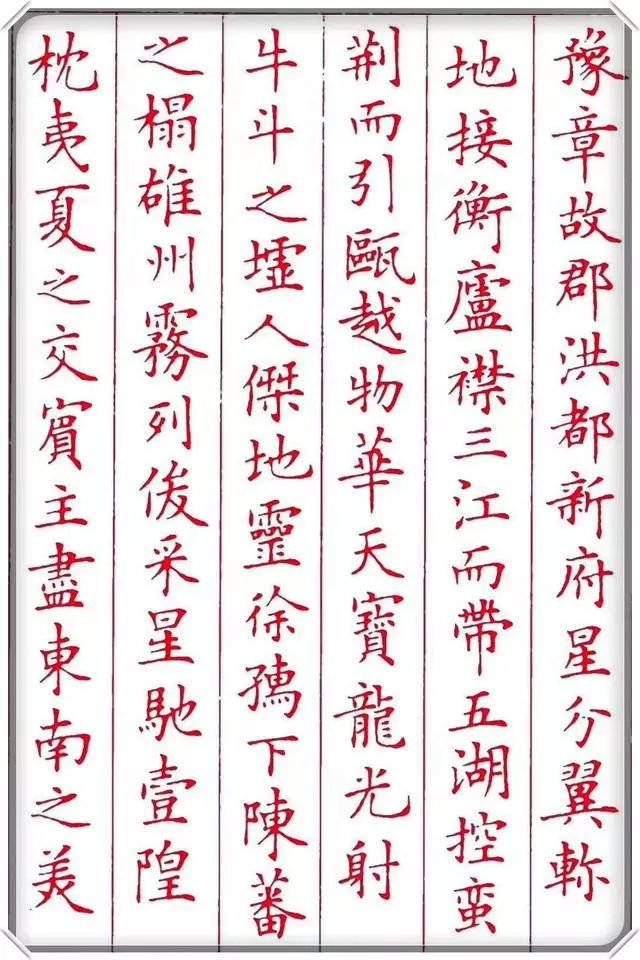 豫章故郡洪都新府星分翼軫
地接衡廬襟三江而帶五湖控蠻
荆而引甌越物華天寶龍光射
牛斗之墟人傑地靈徐孺下陳蕃
之榻雄州霧列俊采星馳臺隍
枕夷夏之交賓主盡東南之美